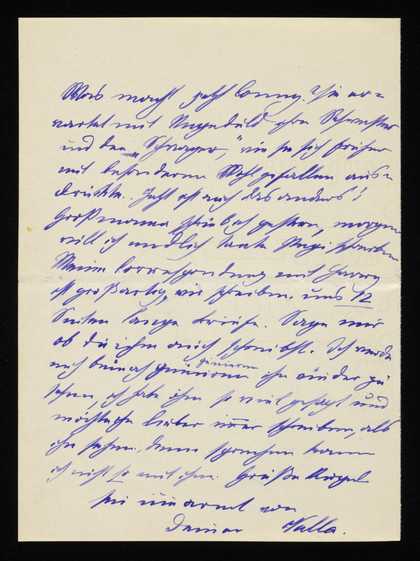 Was macht jetzt Conny? Sie er=
wartet mit Ungeduld ihre Schwester
und den „Schwager", wie sie sich früher
mit besonderem Wohlgefallen aus=
drückte. Jetzt ist auch das anders!
Großmama schrieb ich gestern, morgen
will ich endlich Tante schreiben
Meine Correspondenz mit Harry
ist großartig, wir schreiben uns 12
Seiten lange Briefe. Sage mir
ob du ihm auch schreibst. Ich werde
mich beinah genieren ihn wieder zu
sehen, ich habe ihm so viel gesagt und
möchte lieber immer schreiben, als
ihn sehen, denn sprechen kann
ich nicht so mit ihm. Grüße
sei umarmt von
Deiner Nella.